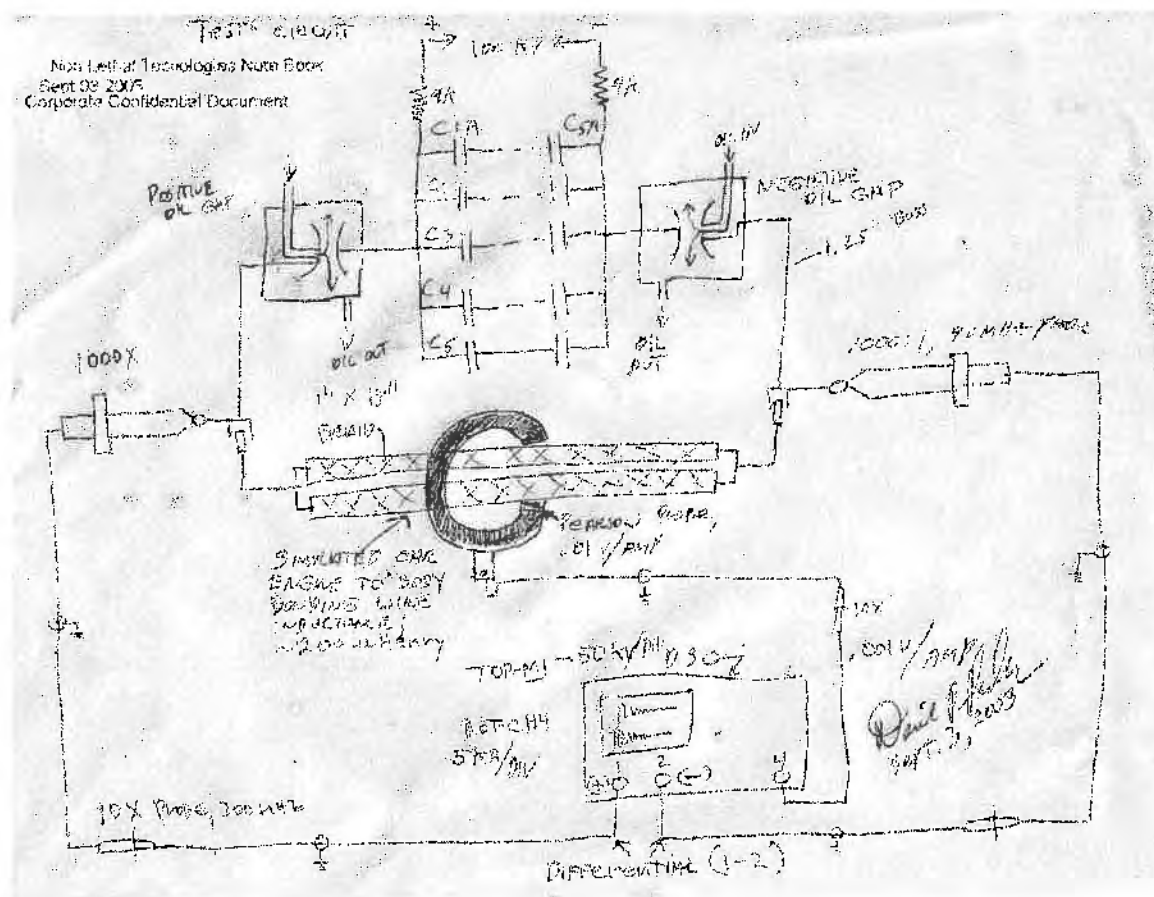 TEST CIRCUIT
Non Lethal Tecnologies Note Book
Sept 03 2003
Corporate Confidential Document
+
-
9A
9A
C1A
C5A
C3
C4
C5
POSITIVE
OIL GAP
OIL IN
NEGATIVE
OIL GAP
1.25" BUSS
OIL OUT
OIL
OUT
1000X
1000:1, 90MHz PROBE
BRAID
PEARSON PROBE,
.01V/AMP
SIMULATED CAR
ENGINE TO BODY
BONDING WIRE
INDUCTANCE,
10X
.001V/AMP
TOP-M1-50KV/
DSO
BOT-CH4
5KA/DIV
2
(-)
4
Sept. 3, 2003
10X PROBE, 200MHz
DIFFERENTIAL (1-2)